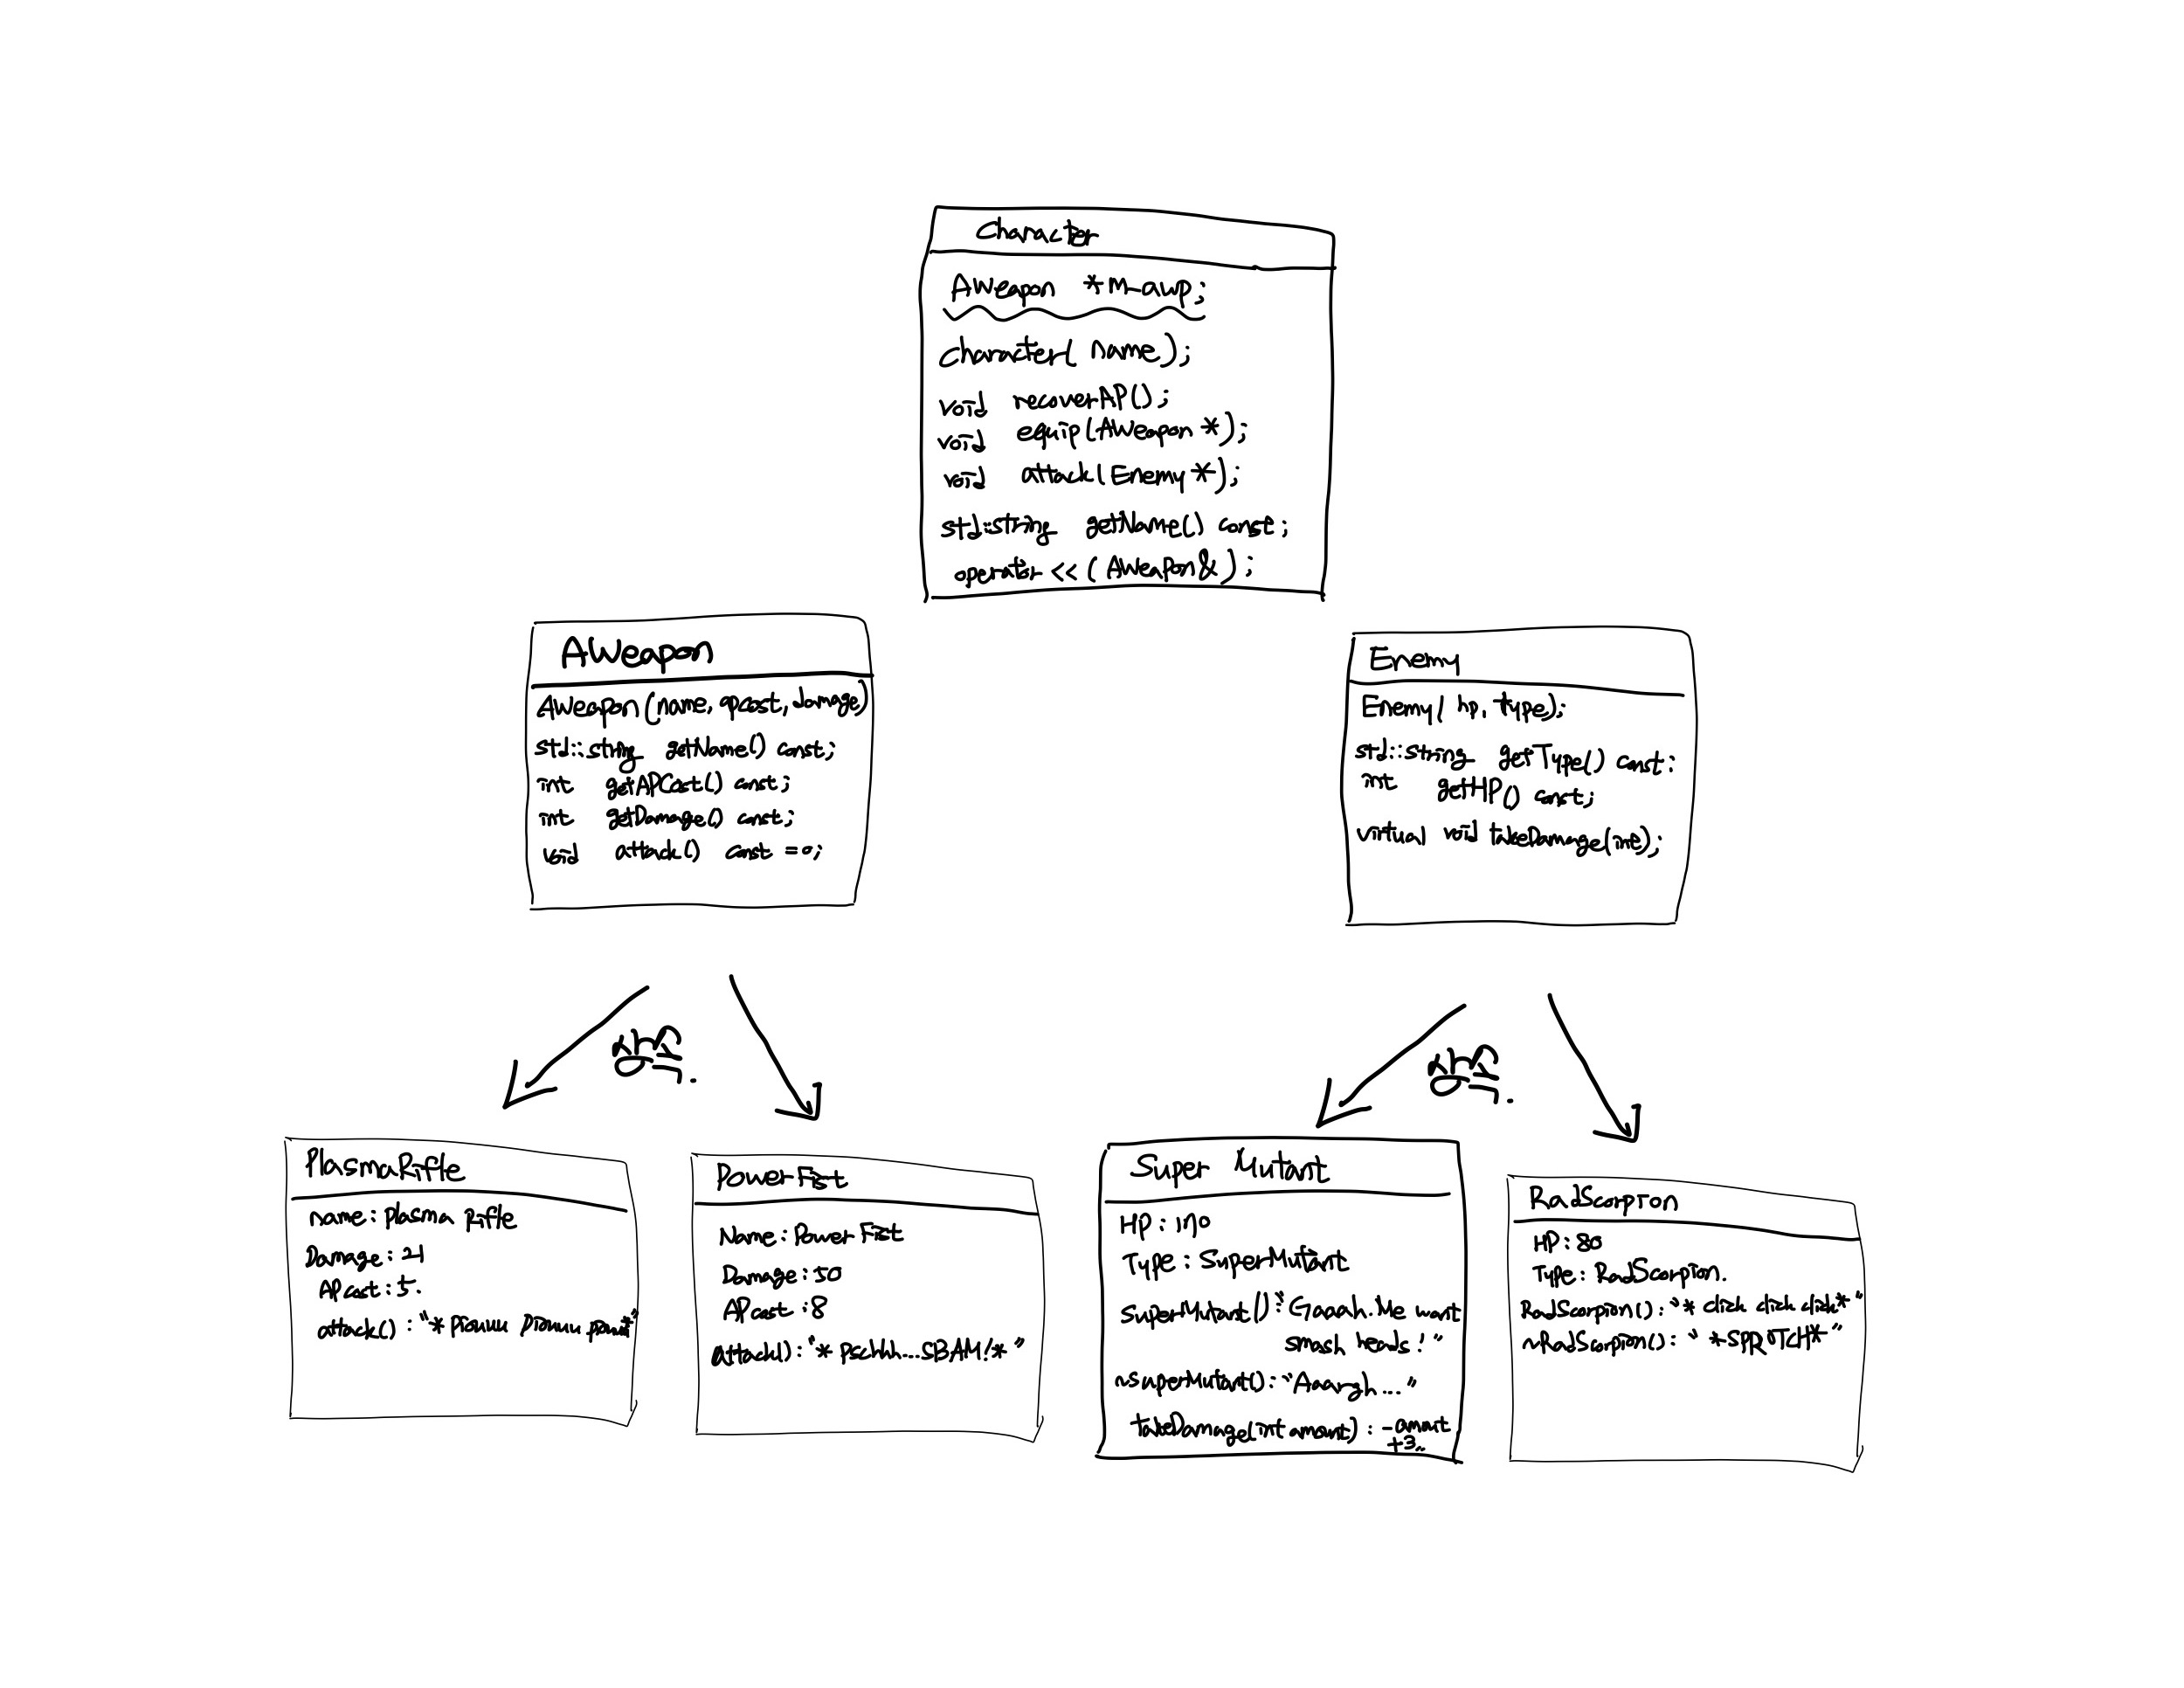 Character
AWeapon *m_awp;
Character( name);
void recoverAP();
void equip(AWeapon *);
void attack(Enemy *);
std::string getName() const;
operator << ( AWeapon& );
AWeapon
AWeapon(name, apcost, damage)
std::string getName() const;
int getAPCost() const;
int getDamage() const;
void attack() const =0;
Enemy
Enemy( hp, type);
std::string getType() const;
int getHP() const;
virtual void takeDamage(int);
상속.
상속.
PlasmaRifle
name: plasma Rifle
Damage: 21
AP cost: 5.
attack() : "* piouuu piouuu piouu*"
PowerFist
Name: Power Fist
Damage: 50
AP cost: 8
attack() : "* pschhh...SBAM! *"
Super Mutant
HP: 170
Type: SuperMutant
SuperMutant() : "Gaaah. Me want
smash heads! "
~SuperMutant() : "Aaargh... "
takeDamage(int amount) : - amount
+3..
RadScorpion
HP: 80
Type: RadScorpion.
RadScorpion() : "* click click click* "
~RadScorpion() : " *SPROTCH* "